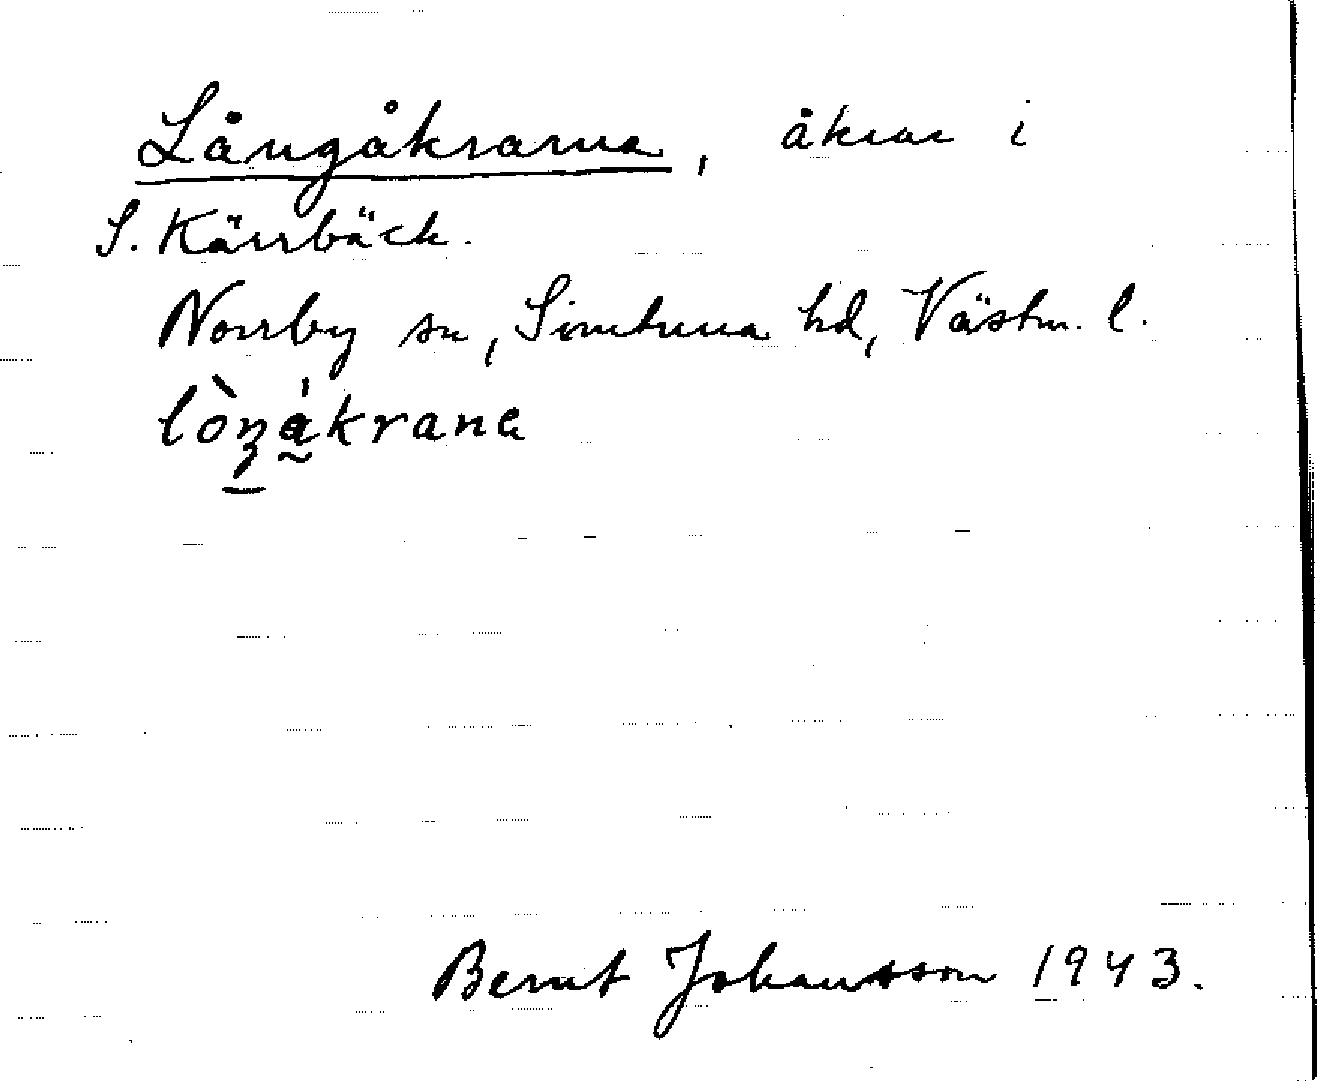 Långåkrarna, åkrar i
S. Kärrbäck.
Norrby sn, Simtuna hd, Västm. l.
lòŋåkrana
Bernt Johansson 1943.